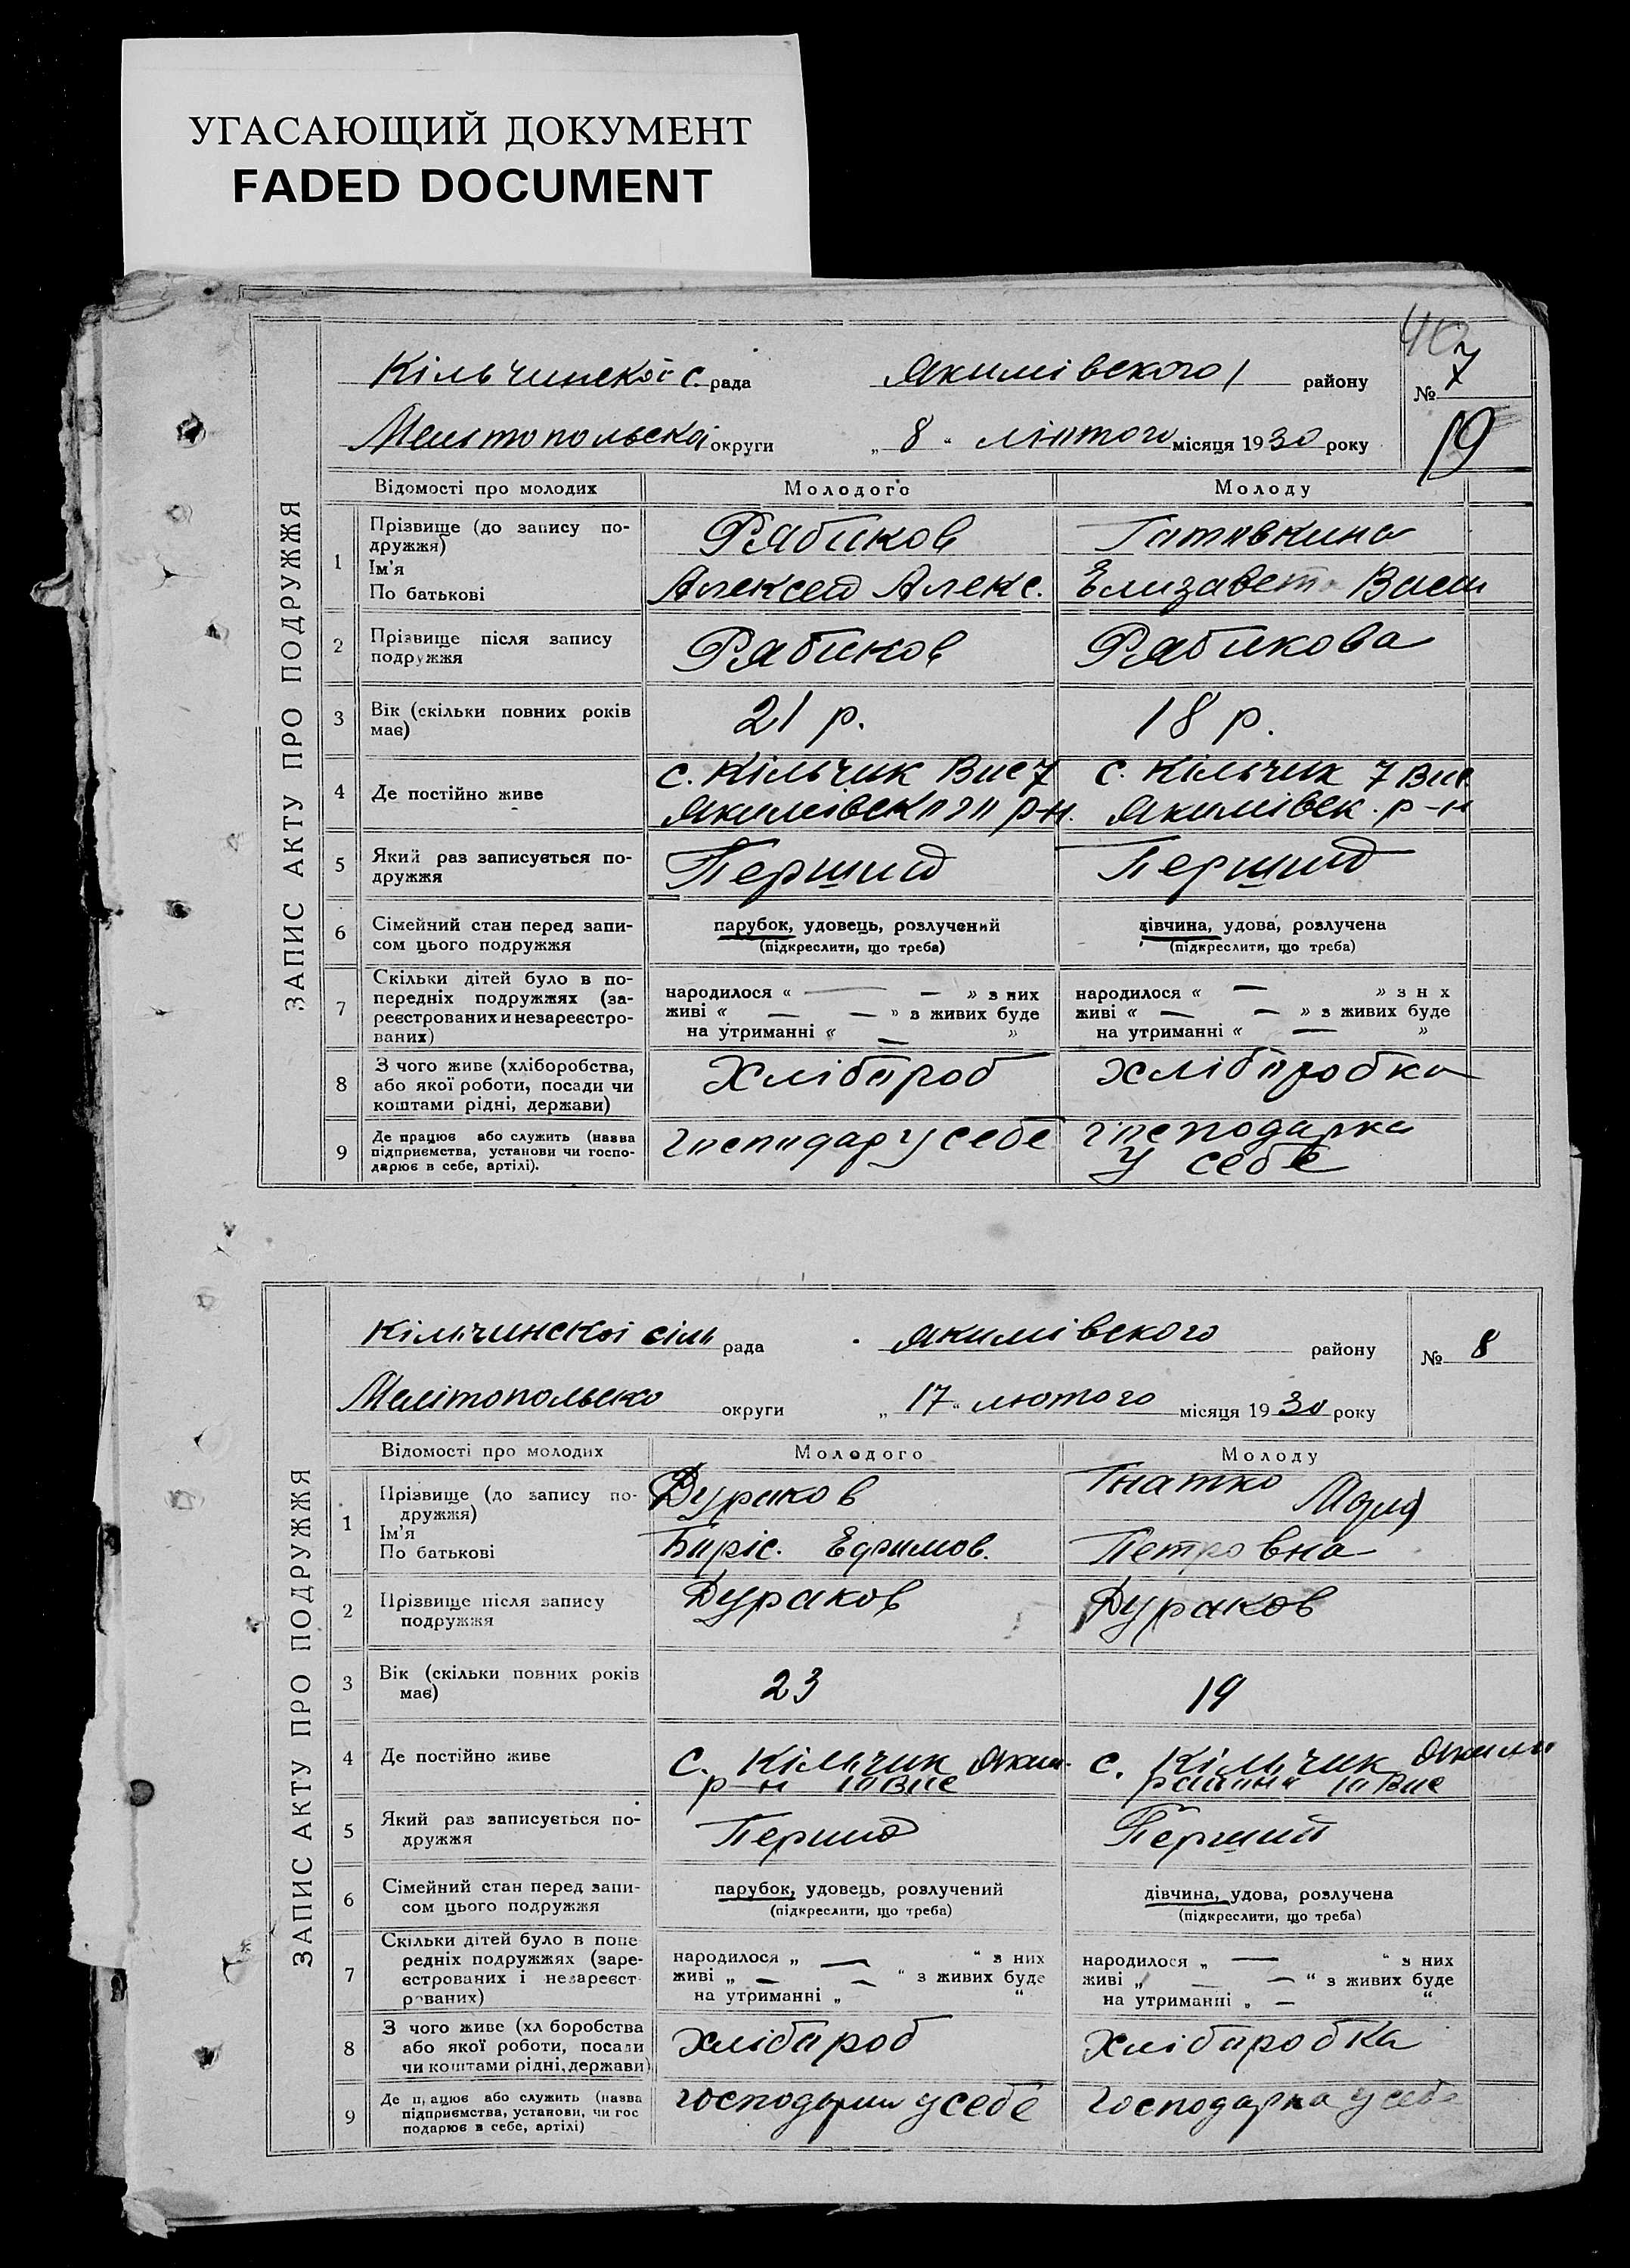 УГАСАЮЩИЙ ДОКУМЕНТ
FADED DOCUMENT
ЗАПИС АКТУ ПРО ПОДРУЖЖЯ
Кільчинскоі с. рада Якимівского району № 7
19
Мелітопольскоі округи „ 8 “ лютого місяця 1930 року
Відомості про молодих Молодого Молоду
1 Прізвище (до запису по-
дружжя) Рябиков
Ім'я
По батькові Алексей Алекс. Елизавет Васи
2 Прізвище після запису
подружжя Рябиков Рябикова
3 Вік (скільки повних років
має) 21 р. 18 р.
4 Де постійно живе с. Кільчик Вис 7 с. Кільчик 7 Вис.
Якимівского р-н. Якимівск. р-н
5 Який раз записується по-
дружжя Перший Перший
6 Сімейний стан перед запи-
сом цього подружжя парубок, удовець, розлучений дівчина, удова, розлучена
(підкреслити, що треба) (підкреслити, що треба)
7 Скільки дітей було в по-
передніх подружжях (за-
реєстрованих и незареєстро-
ваних) народилося « — — » з них народилося « — » з н х
живі « — — » з живих буде живі « — — » з живих буде
на утриманні « — » на утриманні « — »
8 З чого живе (хліборобства,
або якої роботи, посади чи
коштами рідні, держави) Хлібороб Хлібробка
9 Де працює або служить (назва
підприємства, установи чи госпо-
дарює в себе, артілі). Господар у себе Господарка
у себе
ЗАПИС АКТУ ПРО ПОДРУЖЖЯ
Кільчинскоі сіль рада Якимівского району № 8
Мелітопольско округи „ 17 “ лютого місяця 1930 року
Відомості про молодих Молодого Молоду
1 Прізвище (до запису по-
дружжя) Дураков Гнатко Мария
Ім'я
По батькові Боріс. Ефимов. Петровна
2 Прізвище після запису
подружжя Дураков Дураков
3 Вік (скільки повних років
має) 23 19
4 Де постійно живе с. Кільчик Яким. с. Кільчик Якимо
р-н 10 Вис района 10 Вис
5 Який раз записується по-
дружжя Перший Перший
6 Сімейний стан перед запи-
сом цього подружжя парубок, удовець, розлучений дівчина, удова, розлучена
(підкреслити, що треба) (підкреслити, що треба)
7 Скільки дітей було в попе-
редніх подружжях (заре-
єстрованих і незареєст-
рованих) народилося „ — “ з них народилося „ — “ з них
живі „ — — “ з живих буде живі „ — — “ з живих буде
на утриманні „ “ на утриманні „ — “
8 З чого живе (хл боробства
або якої роботи, посади
чи коштами рідні, держави) Хлібороб Хліборобка
9 Де працює або служить (назва
підприємства, установи, чи гос
подарює в себе, артілі) Господарим у себе Господарка у себе